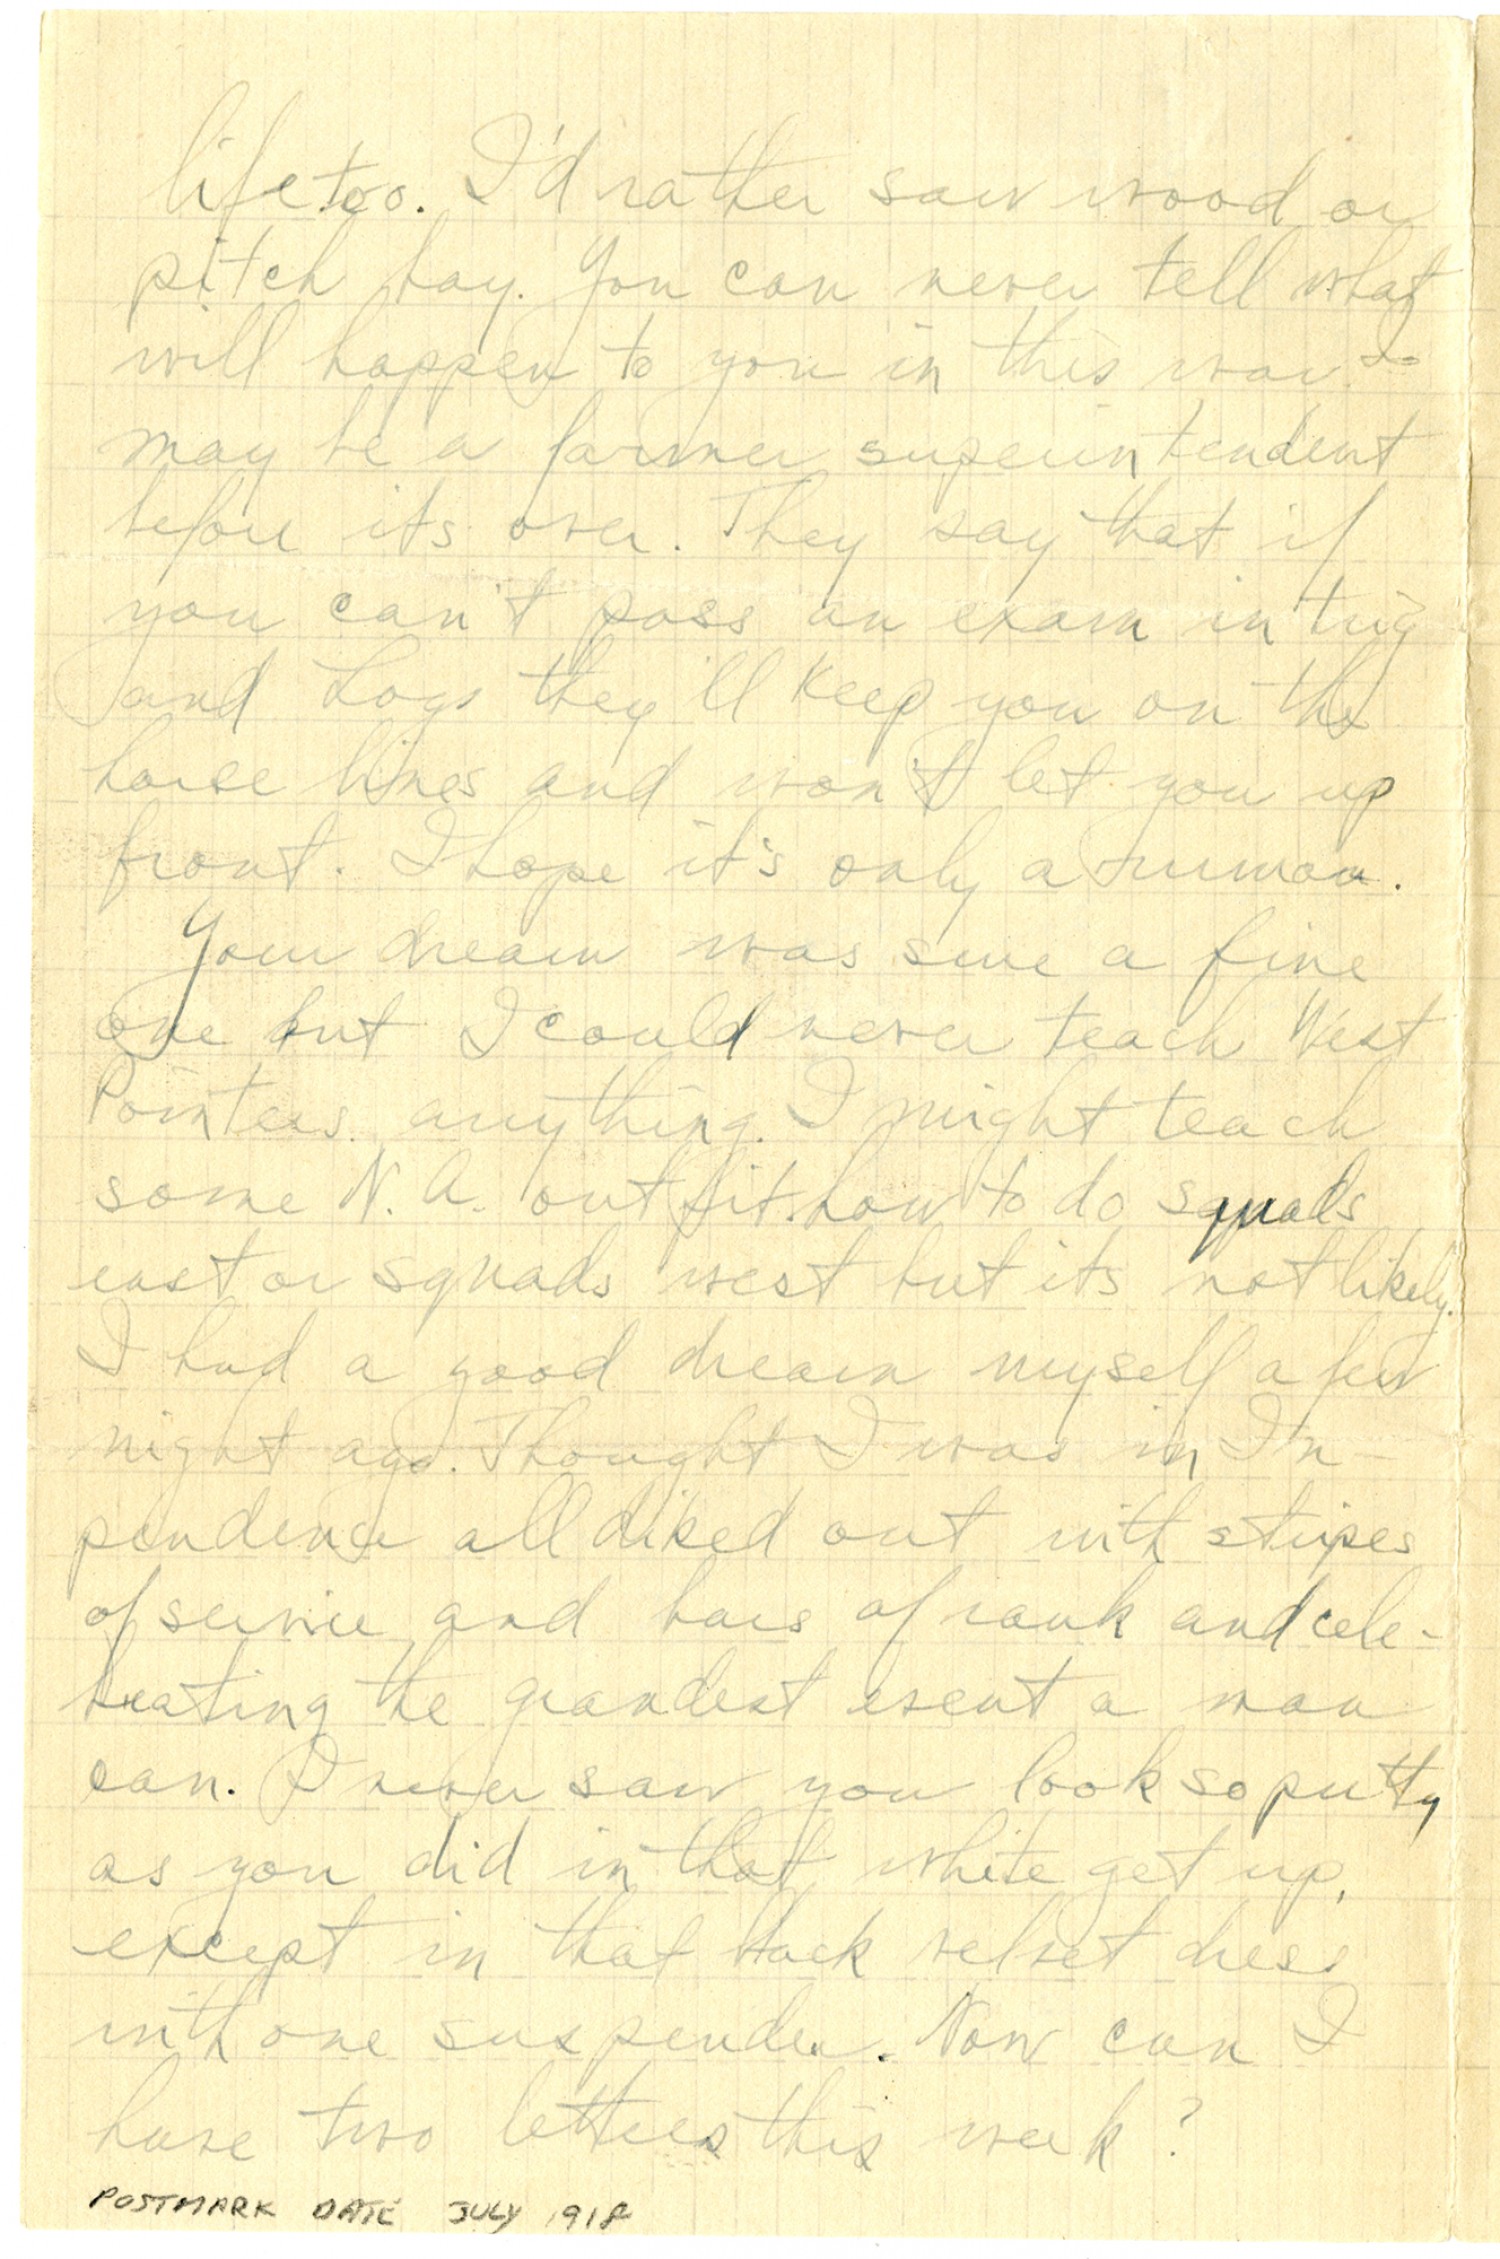 life too. I'd rather saw wood or
pitch hay. You can never tell what
will happen to you in this war. I
may be a farmer superintendent
before its over. They say that if
you can't pass an exam in trig
and Logs they'll keep you on the
horse lines and won't let you up
front. I hope it's only a rumor.
Your dream was sure a fine
one but I could never teach West
Pointers anything. I might teach
some N.A. outfit how to do squads
east or squads west but its not likely.
I had a good dream myself a few
night ago. Thought I was in In-
pendence all diked out with stripes
of service and bars of rank and cele-
brating the grandest event a man
can. I never saw you look so putty
as you did in that white get up,
except in that black velvet dress
with one suspender. Now can I
have two letters this week?
POSTMARK DATE JULY 1918